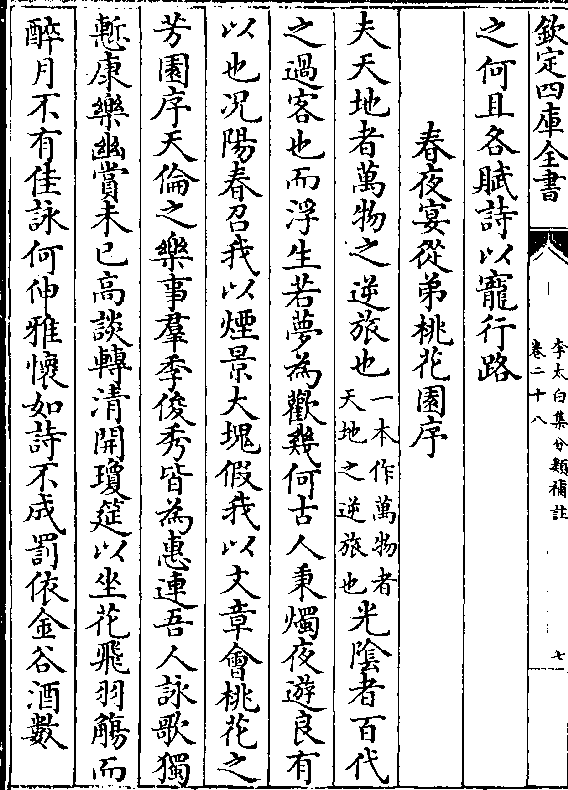 欽定四庫全書
李太白集分類補註
卷二十八
七
之何且各賦詩以寵行路
春夜宴從弟桃花園序
夫天地者萬物之逆旅也一本作萬物者天地之逆旅也光陰者百代
之過客也而浮生若夢為歡幾何古人秉燭夜遊良有
以也況陽春召我以煙景大塊假我以文章會桃花之
芳園序天倫之樂事羣季俊秀皆為惠連吾人詠歌獨
慙康樂幽賞未已高談轉清開瓊筵以坐花飛羽觴而
醉月不有佳詠何伸雅懷如詩不成罰依金谷酒數